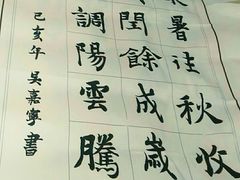 暑往
秋收
閏餘
成歲
調陽
雲騰
己亥年 吴嘉寧書